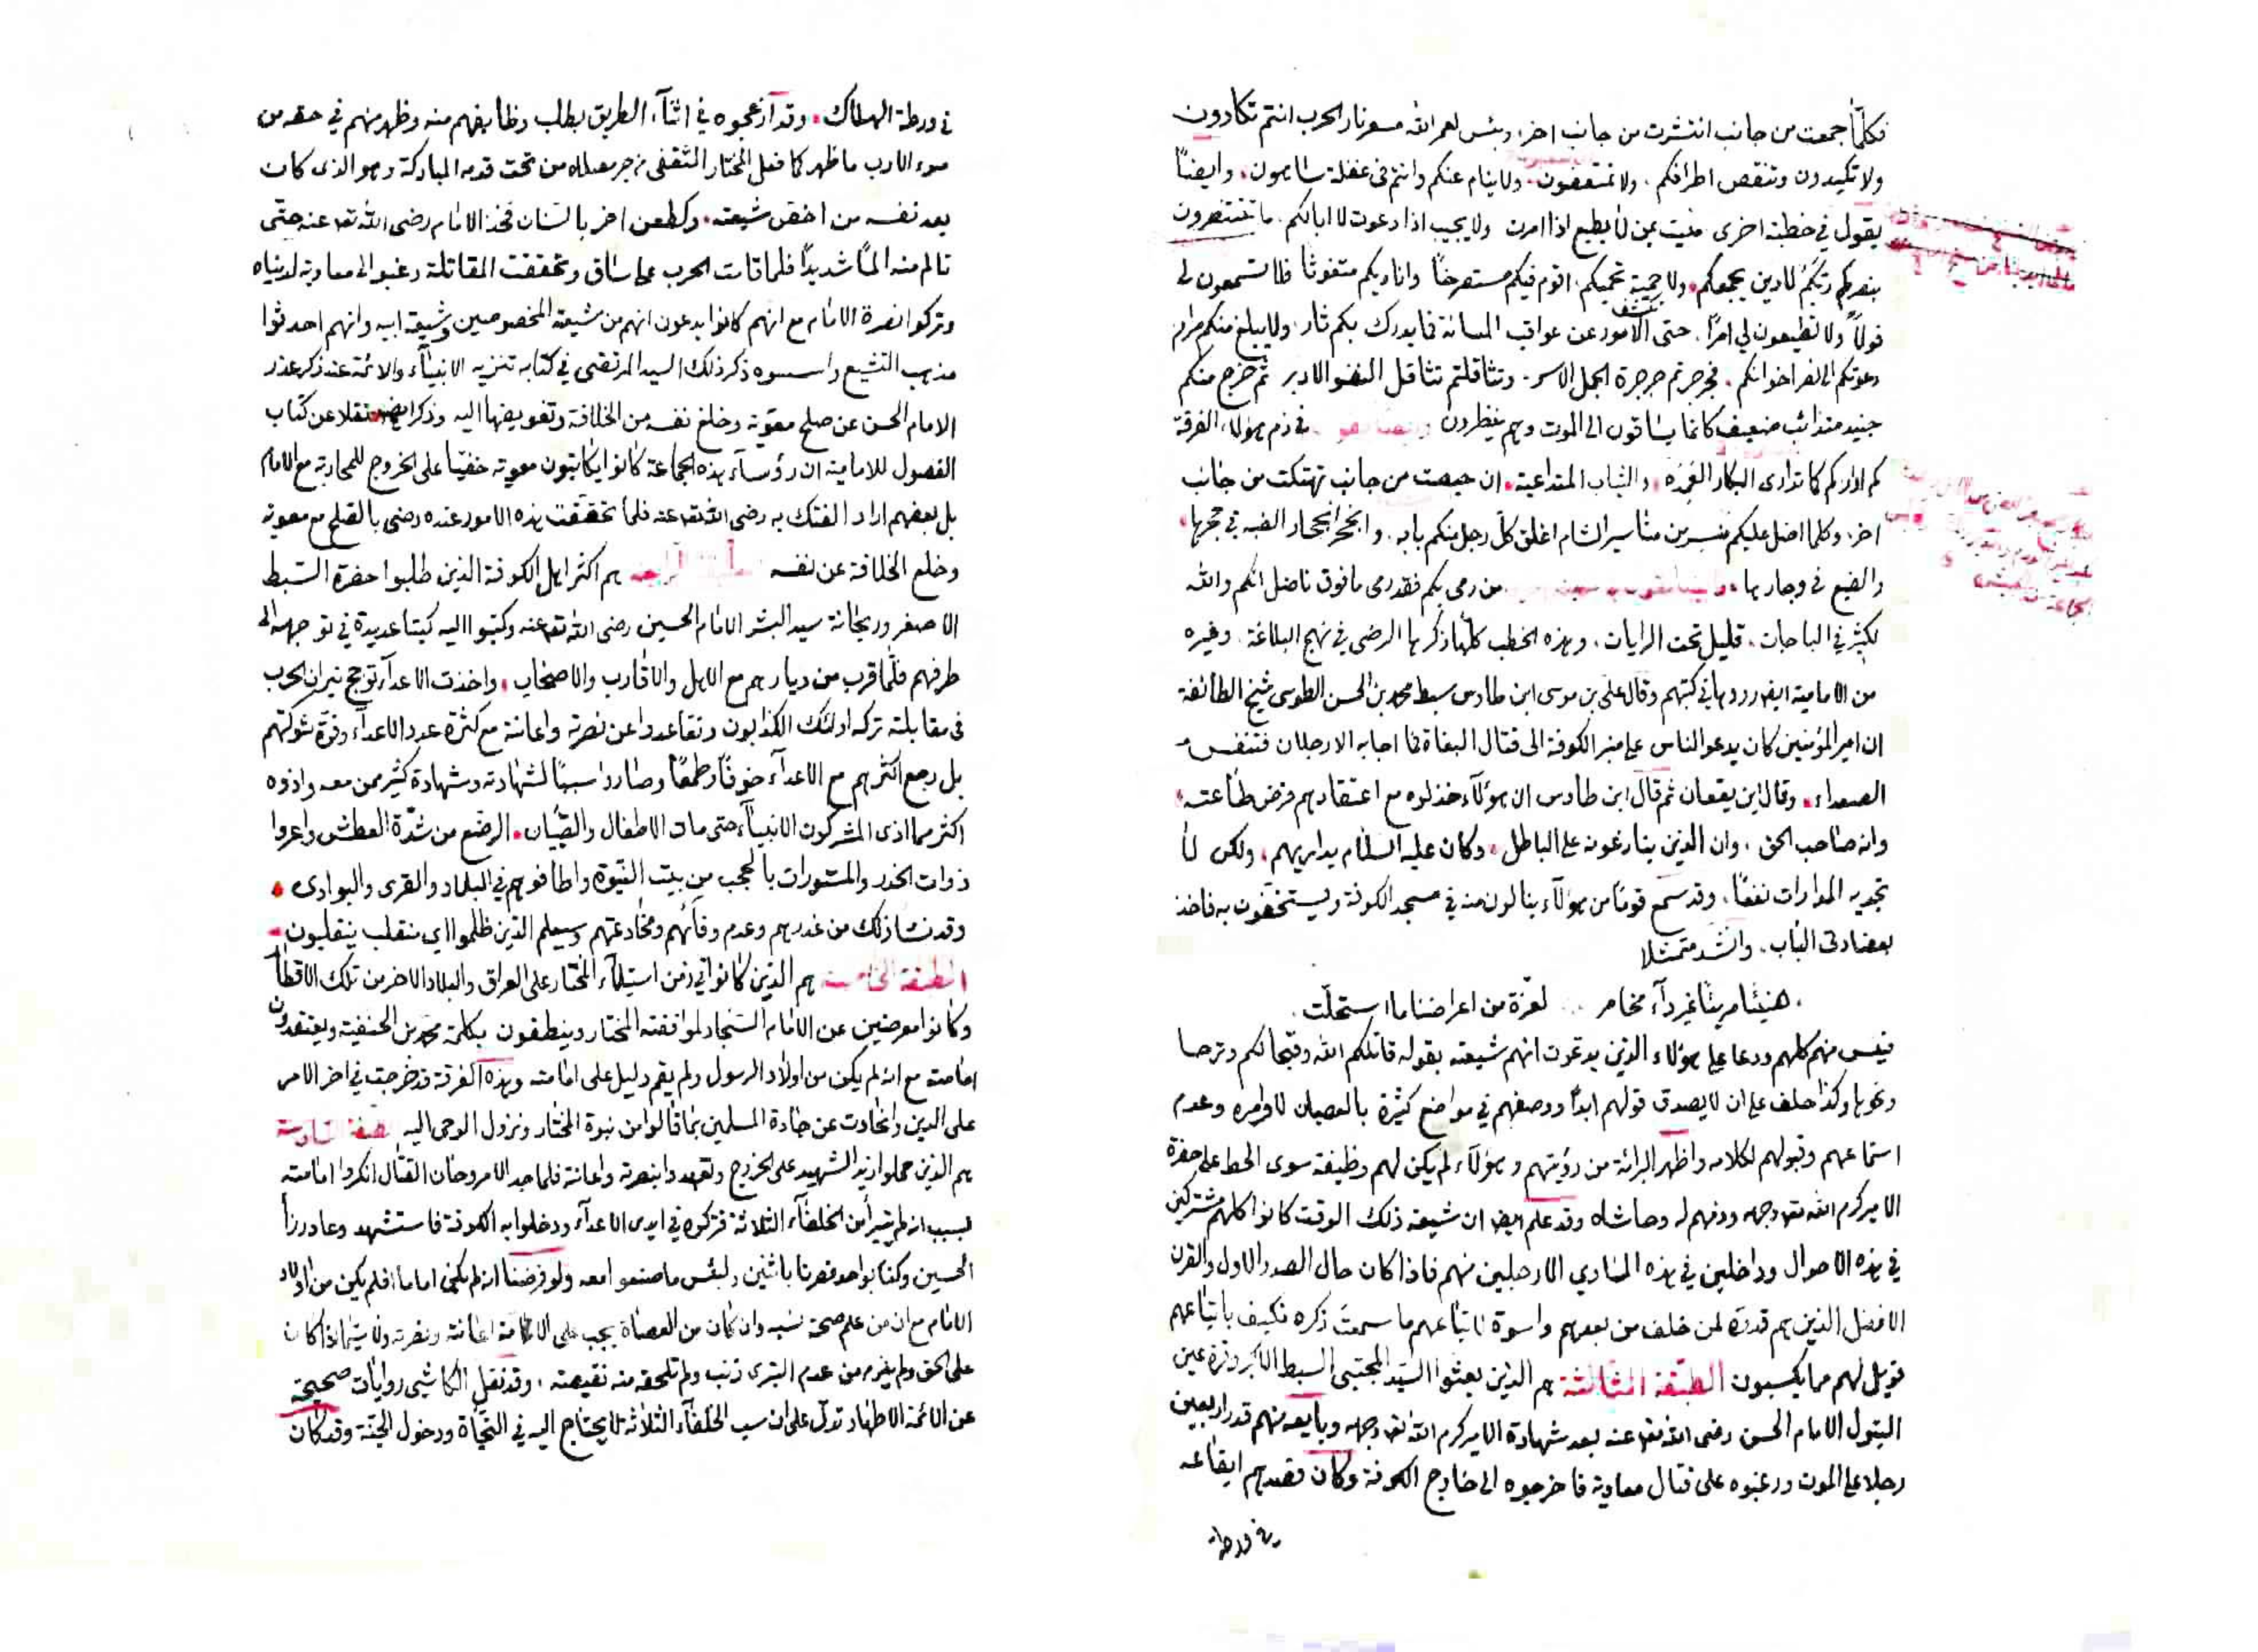 فكلما جمعت من جانب انتشرت من جانب اخر، وبئس لعمر الله مسعر نار الحرب انتم تكادون
ولا تكيدون وتنقص اطرافكم. ولا تمتعضون. ولا ينام عنكم وانتم في غفلة ساهون. وايضًا
يقول في خطبة اخرى منيت بمن لا يطيع اذا امرت ولا يجيب اذا دعوت لا ابالكم. ما تنتظرون
بنصركم ربكم لا دين يجمعكم. ولا حمية تحميكم. اقوم فيكم مستصرخًا واناديكم متغوثًا فلا تسمعون لي
قولاً ولا تطيعون لي امرًا. حتى تكشف الامور عن عواقب المسائة فما يدرك بكم ثار. ولا يبلغ منكم مرام
دعوتكم الى نصر اخوانكم. فجرجرتم جرجرة الجمل الاسر. وتثاقلتم تثاقل النضو الادبر ثم خرج منكم
جنيد متذائب ضعيف كانما يساقون الى الموت وهم ينظرون في ذم هؤلاء الفرقة
كم اداريكم كما تدارى البكار العمدة. والثياب المتداعية. ان حيصت من جانب تهتكت من جانب
اخر، وكلما اضل عليكم منسر من مناسير الشام اغلق كل رجل منكم بابه. وانجحر انجحار الضبة في حجرها.
والضبع في وجارها. من رمى بكم فقد رمى بافوق ناضل انكم والله
لكثير في الباحات. قليل تحت الرايات. وهذه الخطب كلها ذكرها الرضي في نهج البلاغة. وغيره
من الامامية ايضا رووها في كتبهم وقال علي بن موسى ابن طاوس سبط محمد بن الحسن الطوسي شيخ الطائفة
ان امير المؤمنين كان يدعو الناس على منبر الكوفة الى قتال البغاة فما اجابه الا رجلان فتنفس
الصعداء. وقال اين يقعان ثم قال ابن طاوس ان هؤلآء خذلوه مع اعتقادهم فرض طاعته.
وانه صاحب الحق، وان الذين ينازعونه على الباطل. وكان عليه السلام يداريهم. ولكن لا
تجديه المدارات نفعًا. وقد سمع قومًا من هؤلآء ينالون منه في مسجد الكوفة ويستخفون به فاخذ
بعضادتي الباب. وانشد متمثلا
هنيئا مريئا غير دآء مخامر .. لعزة من اعراضنا ما استحلّت.
فيئس منهم كلهم ودعا على هؤلاء الذين يدعون انهم شيعته بقوله قاتلكم الله وقبحا لكم وترحا
ونحوها وكذا حلف على ان لا يصدق قولهم ابدًا ووصفهم في مواضع كثيرة بالعصيان لاوامره وعدم
استماعهم وقبولهم لكلامه واظهر البرائة من رؤيتهم وهؤلآء لم يكن لهم وظيفة سوى الحط على حضرة
الامير كرم الله تعا وجهه وذمهم له وحاشاه وقد علم ايضا ان شيعة ذلك الوقت كانوا كلهم مشتركين
في هذه الاحوال وداخلين في هذه المساوي الا رجلين منهم فاذا كان حال الصدر الاول والقرن
الافضل الذين هم قدوة لمن خلف من بعدهم واسوة لاتباعهم ما سمعت ذكره فكيف باتباعهم
فويل لهم مما يكسبون الطبقة الثالثة هم الذين بعثوا السيد المجتبى السبط الاكبر وقرة عين
البتول الامام الحسن رضي الله تعا عنه بعد شهادة الامير كرم الله تعا وجهه وبايعه منهم قدر اربعين
رجلا على الموت ورغبوه على قتال معاوية فاخرجوه الى خارج الكوفة وكان قصدهم ايقاعه
في ورطة
في ورطة الهلاك. وقد ازعجوه في اثنآء الطريق بطلب وظايفهم منه وظهر منهم في حقه من
سوء الادب ما ظهر كما فعل المختار الثقفي من جر مصلاه من تحت قدمه المباركة وهو الذي كان
يعد نفسه من اخص شيعته. وكطعن اخر بالسنان فخذ الامام رضي الله تعا عنه حتى
تالم منه المًا شديدًا فلما قامت الحرب على ساق وتحققت المقاتلة رغبوا الى معاوية لدنياه
وتركوا نصرة الامام مع انهم كانوا يدعون انهم من شيعته المخصوصين وشيعة ابيه وانهم احدثوا
مذهب التشيع واسسوه ذكر ذلك السيد المرتضى في كتابه تنزيه الانبيآء والائمة عند ذكر عذر
الامام الحسن عن صلح معوية وخلع نفسه من الخلافة وتفويضها اليه وذكر ايضا نقلا عن كتاب
الفصول للامامية ان رؤسآء هذه الجماعة كانوا يكاتبون معوية خفيًا على الخروج للمحاربة مع الامام
بل بعضهم اراد الفتك به رضي الله تعا عنه فلما تحققت هذه الامور عنده رضى بالصلح مع معوية
وخلع الخلافة عن نفسه الطبقة الرابعة هم اكثر اهل الكوفة الذين طلبوا حضرة السبط
الاصغر وريحانة سيد البشر الامام الحسين رضي الله تعا عنه وكتبوا اليه كتبا عديدة في توجهه الى
طرفهم فلما قرب من ديارهم مع الاهل والاقارب والاصحاب. واخذت الاعدآء توجج نيران الحرب
في مقابلته تركه اولئك الكذابون وتقاعدوا عن نصرته واعانته مع كثرة عدد الاعدآء وقوة شوكتهم
بل رجع اكثرهم مع الاعدآء خوفًا وطمعًا وصاروا سببًا لشهادته وشهادة كثير ممن معه واذوه
اكثر مما اذى المشركون الانبيآء حتى مات الاطفال والصبيان. الرضع من شدة العطش واعروا
ذوات الخدر والمستورات بالحجب من بيت النبوة واطافوهم في البلاد والقرى والبوادي.
وقد نشا ذلك من غدرهم وعدم وفآئهم ومخادعتهم وسيعلم الذين ظلموا اي منقلب ينقلبون.
الطبقة الخامسة هم الذين كانوا في زمن استيلآء المختار على العراق والبلاد الاخر من تلك الاقطار
وكانوا معرضين عن الامام السجاد لموافقته المختار وينطقون بكلمة محمد بن الحنفية ويعتقدون
امامته مع انه لم يكن من اولاد الرسول ولم يقم دليل على امامته وهذه الفرقة قد خرجت في اخر الامر
على الدين وانحادت عن جادة المسلمين بما قالوا من نبوة المختار ونزول الوحي اليه الطبقة السادسة
هم الذين حملوا زيد الشهيد على الخروج وتعهدوا بنصرته واعانته فلما جد الامر وحان القتال انكروا امامته
بسبب انه لم يتبرأ من الخلفآء الثلاثة فتركوه في ايدي الاعدآء ودخلوا به الكوفة فاستشهد وعاد رزأ
الحسين وكنا بواحد فصرنا باثنين ولبئس ما صنعوا معه ولو فرضنا انه لم يكن اماما افلم يكن من اولاد
الامام مع ان من علم صحة نسبه وان كان من العصاة يجب على الامة اعانته ونصرته ولا سيما اذا كان
على الحق ولم يلزمه من عدم التبرى ذنب ولم تلحقه منه نقيصة، وقد نقل الكاشي روايات صحيحة
عن الائمة الاطهار تدل على ان سب الخلفآء الثلاثة لا يحتاج اليه في النجاة ودخول الجنة وقد كان